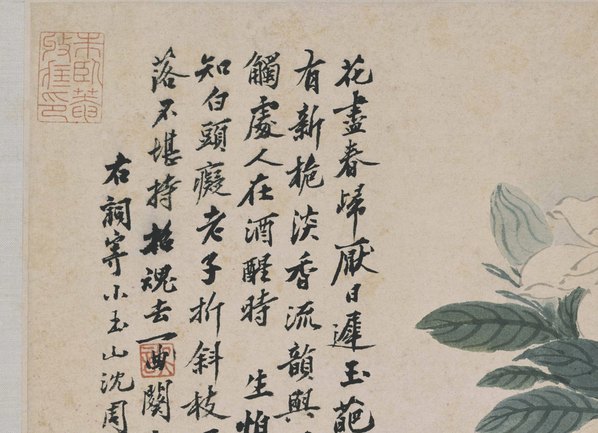 花盡春歸厭日遲玉葩
有新梔淡香流韻與
觸處人在酒醒時 生怕
知白頭癡老子折斜枝
落不堪持招魂去一曲關
右詞寄小玉山沈周